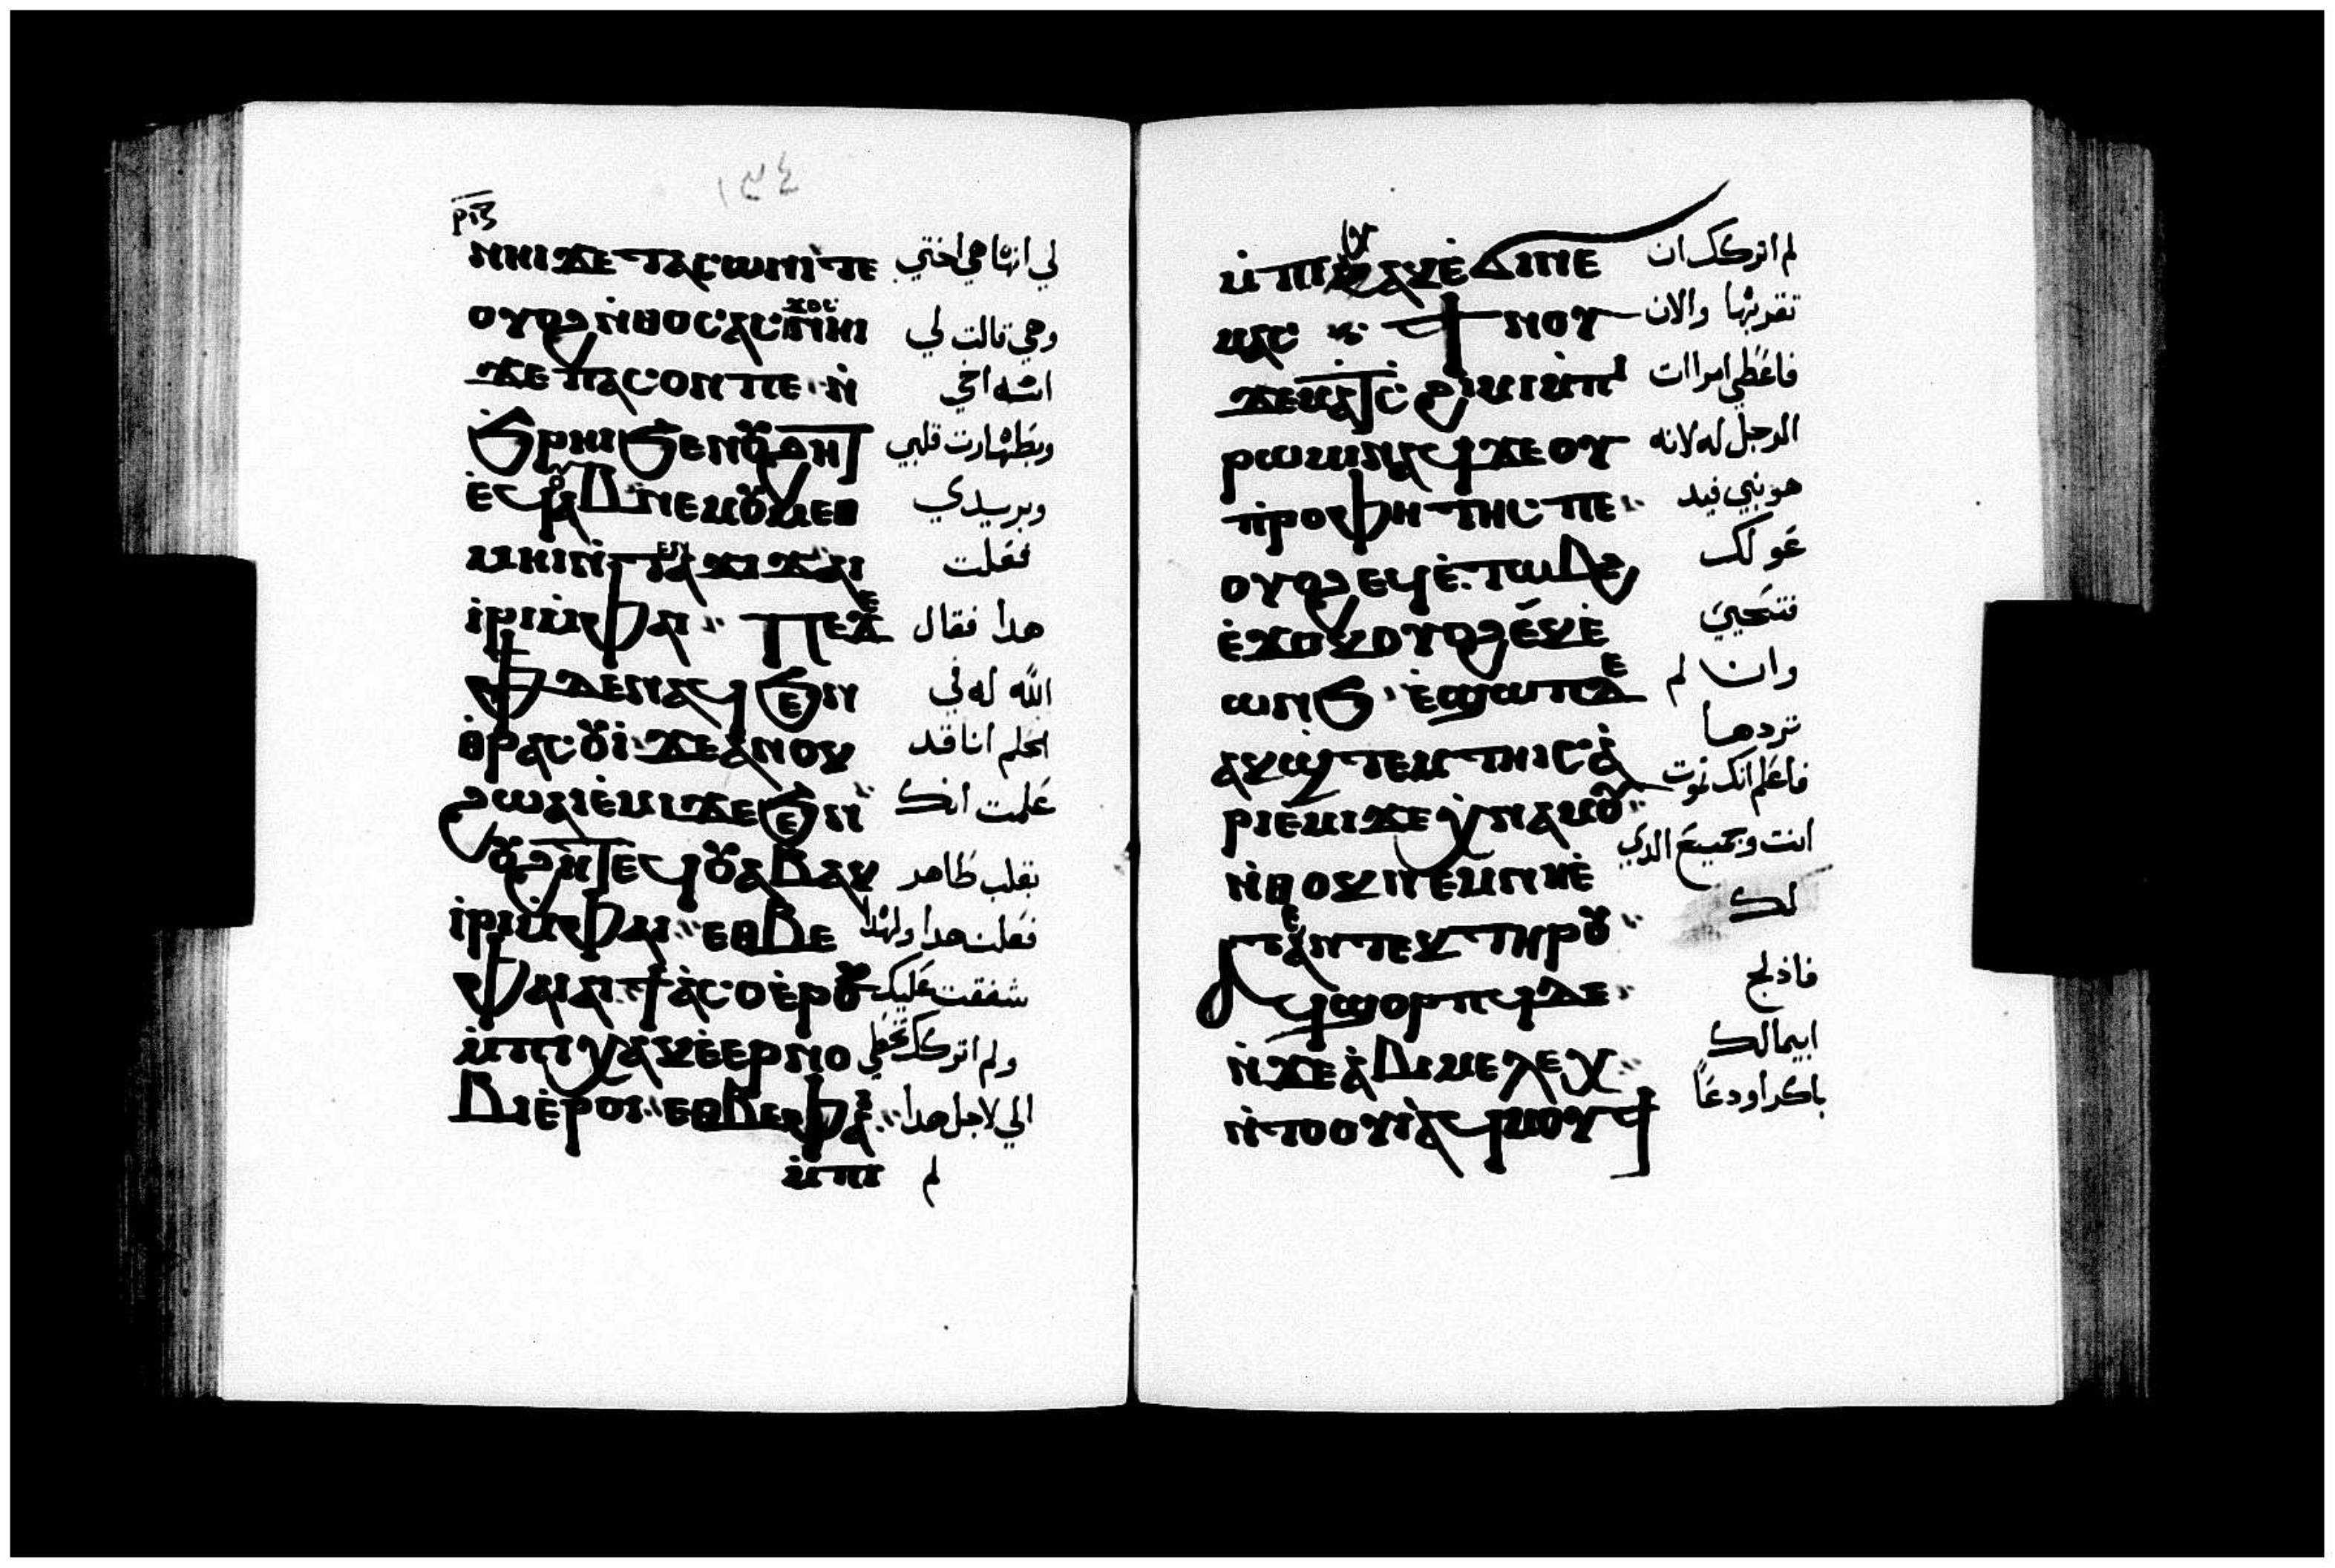 ١٩٤
ⲣⲓⲍ
ⲛⲏⲓ ϫⲉ ⲧⲁⲥⲱⲛⲓ ⲧⲉ لي انها هي اختي
ⲟⲩⲟϩ ⲛ̇ⲑⲟⲥ ⲁⲥϫⲟⲥ ⲛⲏⲓ وهي قالت لي
ϫⲉ ⲡⲁⲥⲟⲛ ⲡⲉ ⲛ̇ انه اخي
ϧⲣⲏⲓ ϧⲉⲛ ⲟⲩϩⲏⲧ وبطهارت قلبي
ⲉ̇ϥⲟⲩⲁⲃ ⲛⲉⲙ ⲟⲩⲙⲉⲑ وبر يدي
ⲙⲏⲓ ⲛ̇ⲧⲉ ⲛⲁϫⲓϫ ⲁⲓ فعلت
ⲓ̇ⲣⲓ ⲙ̇ⲫⲁⲓ ⲡⲉϫⲉ هدا فقال
ⲫϯ ⲇⲉ ⲛⲁϥ ϧⲉⲛ الله له في
ⲑ̇ⲣⲁⲥⲟⲩⲓ̇ ϫⲉ ⲁ̇ⲛⲟⲕ الحلم انا قد
ϩⲱ ⲁⲓⲉ̇ⲙⲓ ϫⲉ ϧⲉⲛ علمت انك
ⲟⲩϩⲏⲧ ⲉϥⲟⲩⲁⲃ ⲁⲕ بقلب طاهر
ⲓ̇ⲣⲓ ⲙ̇ⲫⲁⲓ ⲉⲑⲃⲉ فعلت هدا ولهدا
ⲫⲁⲓ ⲁⲓϯⲁ̇ⲥⲟ ⲉ̇ⲣⲟⲕ شفقت عليك
ⲙ̇ⲡⲓⲭⲁⲕ ⲉ̇ⲉⲣⲛⲟ ولم اتركك تخطي
ⲃⲓ ⲉ̇ⲣⲟⲓ ⲉⲑⲃⲉ ⲫⲁⲓ الي لاجل هدا
ⲙ̇ⲡⲓ لم
ⲙ̇ⲡⲓⲭⲁⲕ ⲉ̇ϧⲱⲛⲧ لم اتركك ان
ⲙⲙⲟⲥ ϯⲛⲟⲩ تقربها والان
ϫⲉ ⲙⲁ ϯⲥϩⲓⲙⲓ ⲙ̇ⲡⲓ فاعطي امراات
ⲣⲱⲙⲓ ⲛⲁϥ ϫⲉ ⲟⲩ الرجل له لانه
ⲡ̇ⲣⲟⲫⲏⲧⲏⲥ ⲡⲉ هو نبي فيد
ⲟⲩⲟϩ ⲉϥⲉ̇ⲧⲱⲃϩ عو لك
ⲉ̇ϫⲱⲕ ⲟⲩⲟϩ ⲉⲕⲉ̇ فتحيي
ⲱⲛϧ ⲉ̇ϣⲱⲡ ⲇⲉ وان لم
ⲁⲕϣ̇ⲧⲉⲙⲧⲏⲓⲥ ⲁ̇ تردها
ⲣⲓⲉ̇ⲙⲓ ϫⲉ ⲭ̇ⲛⲁⲙⲟⲩ فاعلم انك تموت
ⲛ̇ⲑⲟⲕ ⲛⲉⲙ ⲛⲏⲉ̇ انت وجميع الدي
ⲧⲉ ⲛ̇ⲧⲉⲕ ⲧⲏⲣⲟⲩ لك
ⲁϥϣⲟⲣⲡϥ ⲇⲉ فادلج
ⲛ̇ϫⲉ ⲁ̇ⲃⲓⲙⲉⲗⲉⲭ ابيمالك
ⲛ̇ⲧⲟⲟⲩⲓ̇ ⲁϥⲙⲟⲩϯ باكرا ودعا